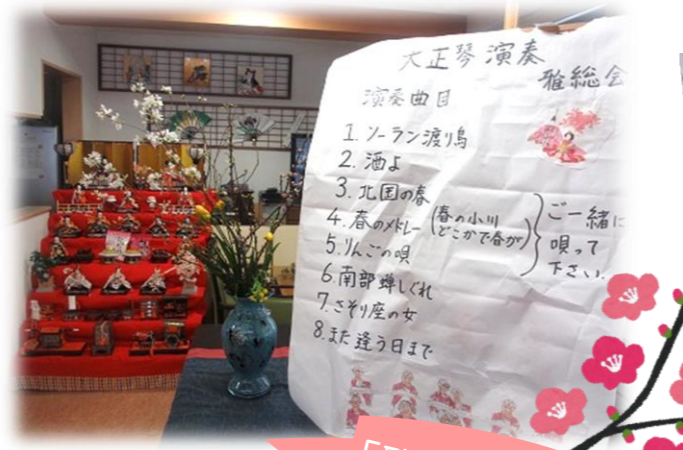 大正琴演奏
雅総会
演奏曲目
1. ソーラン渡り鳥
2. 酒よ
3. 北国の春
4. 春のメドレー(春の小川
どこかで春が)
5. りんごの唄
6. 南部蝉しぐれ
7. さそり座の女
8. また逢う日まで
ご一緒に
唄って
下さい。